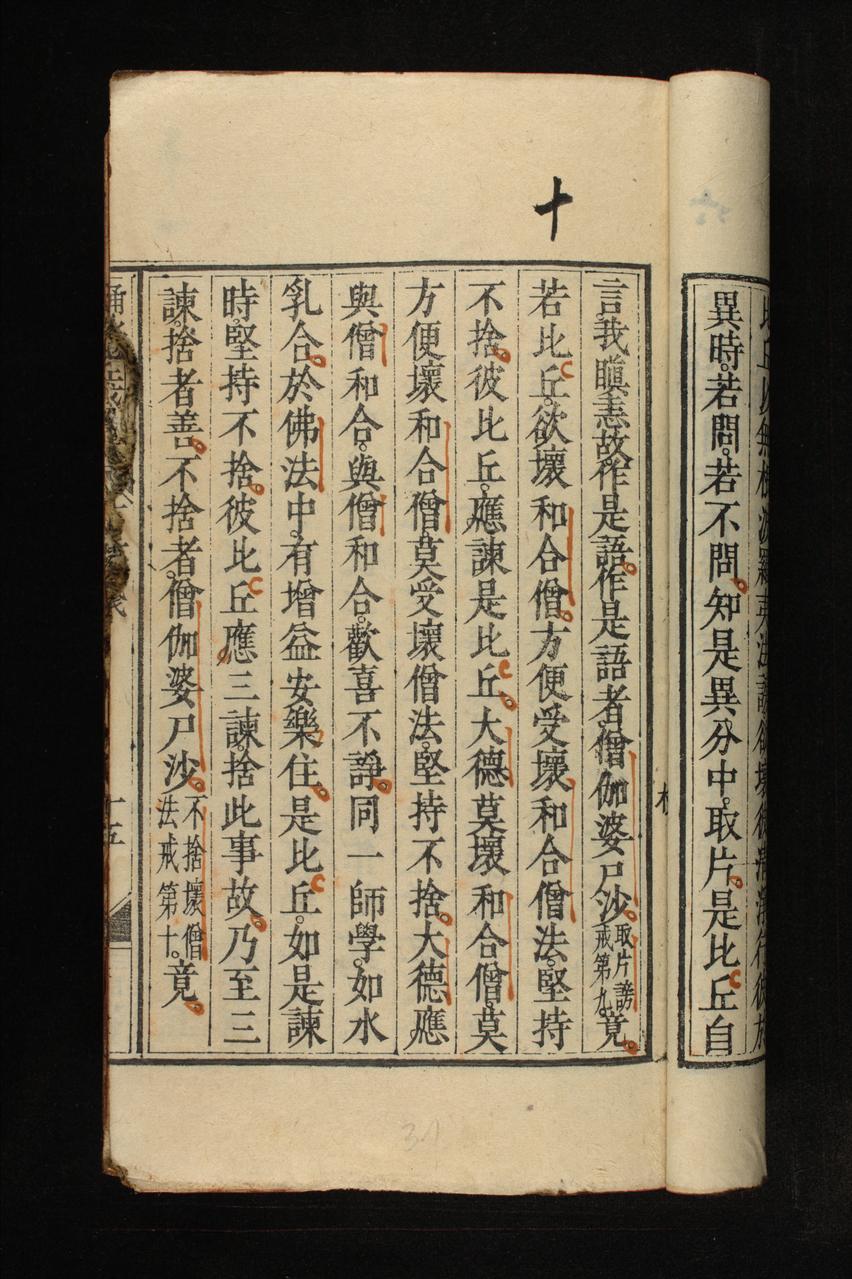 十
異時。若問。若不問。知是異分中。取片。是比丘自
言。我瞋恚故作是語。作是語者。僧伽婆尸沙。取片謗戒第九。竟。
若比丘。欲壞和合僧。方便受壞和合僧法。堅持
不捨。彼比丘。應諫是比丘。大德莫壞和合僧。莫
方便壞和合僧。莫受壞僧法。堅持不捨。大德應
與僧和合。與僧和合。歡喜不諍。同一師學。如水
乳合。於佛法中。有增益安樂住。是比丘。如是諫
時。堅持不捨。彼比丘應三諫。捨此事故。乃至三
諫。捨者善。不捨者。僧伽婆尸沙。不捨壞僧法戒第十。竟。
十五